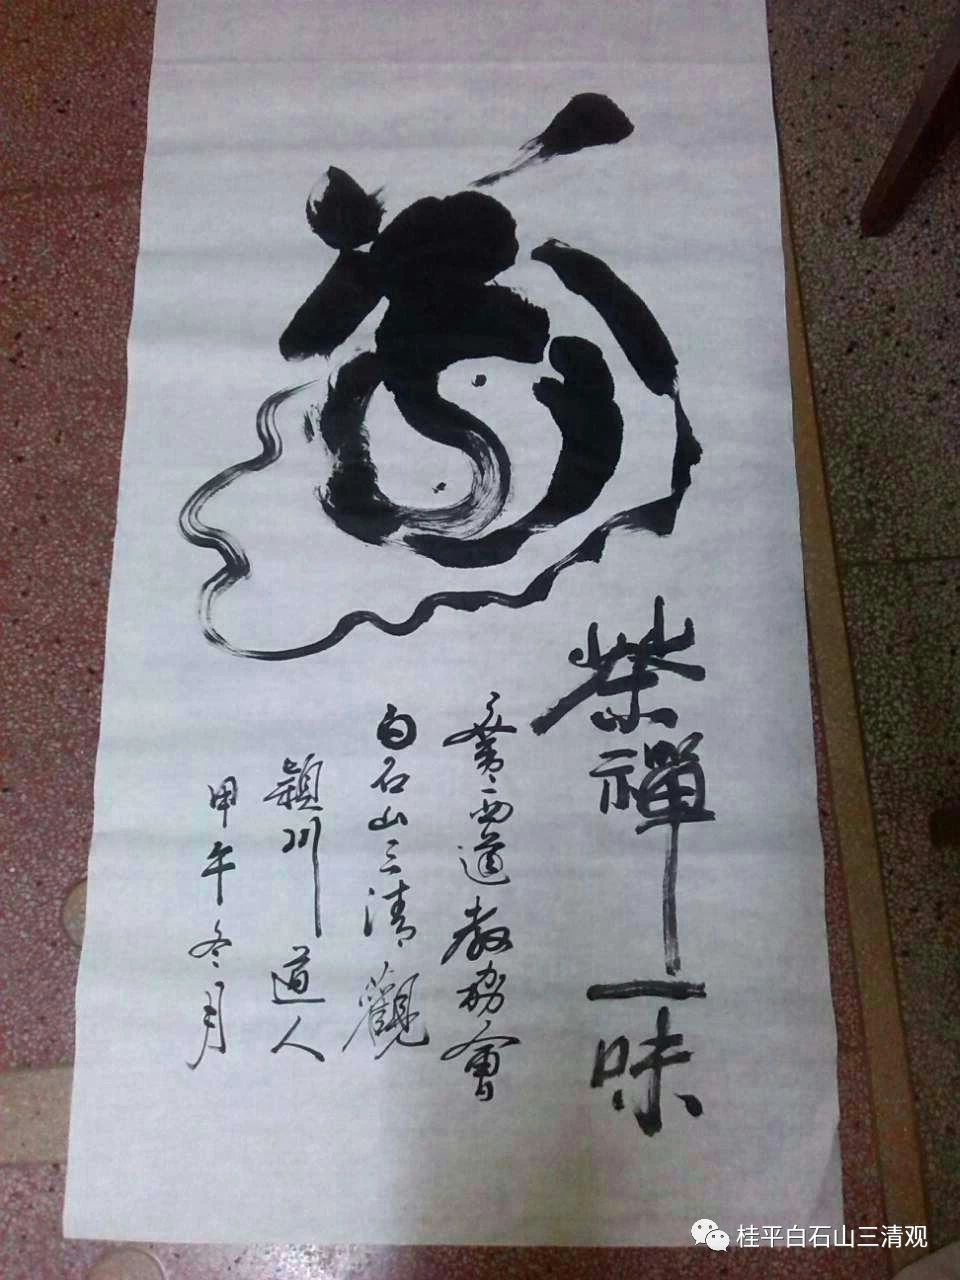 茶禪一味
廣西道教協會
白石山三清觀
潁川道人
甲午冬月
桂平白石山三清观